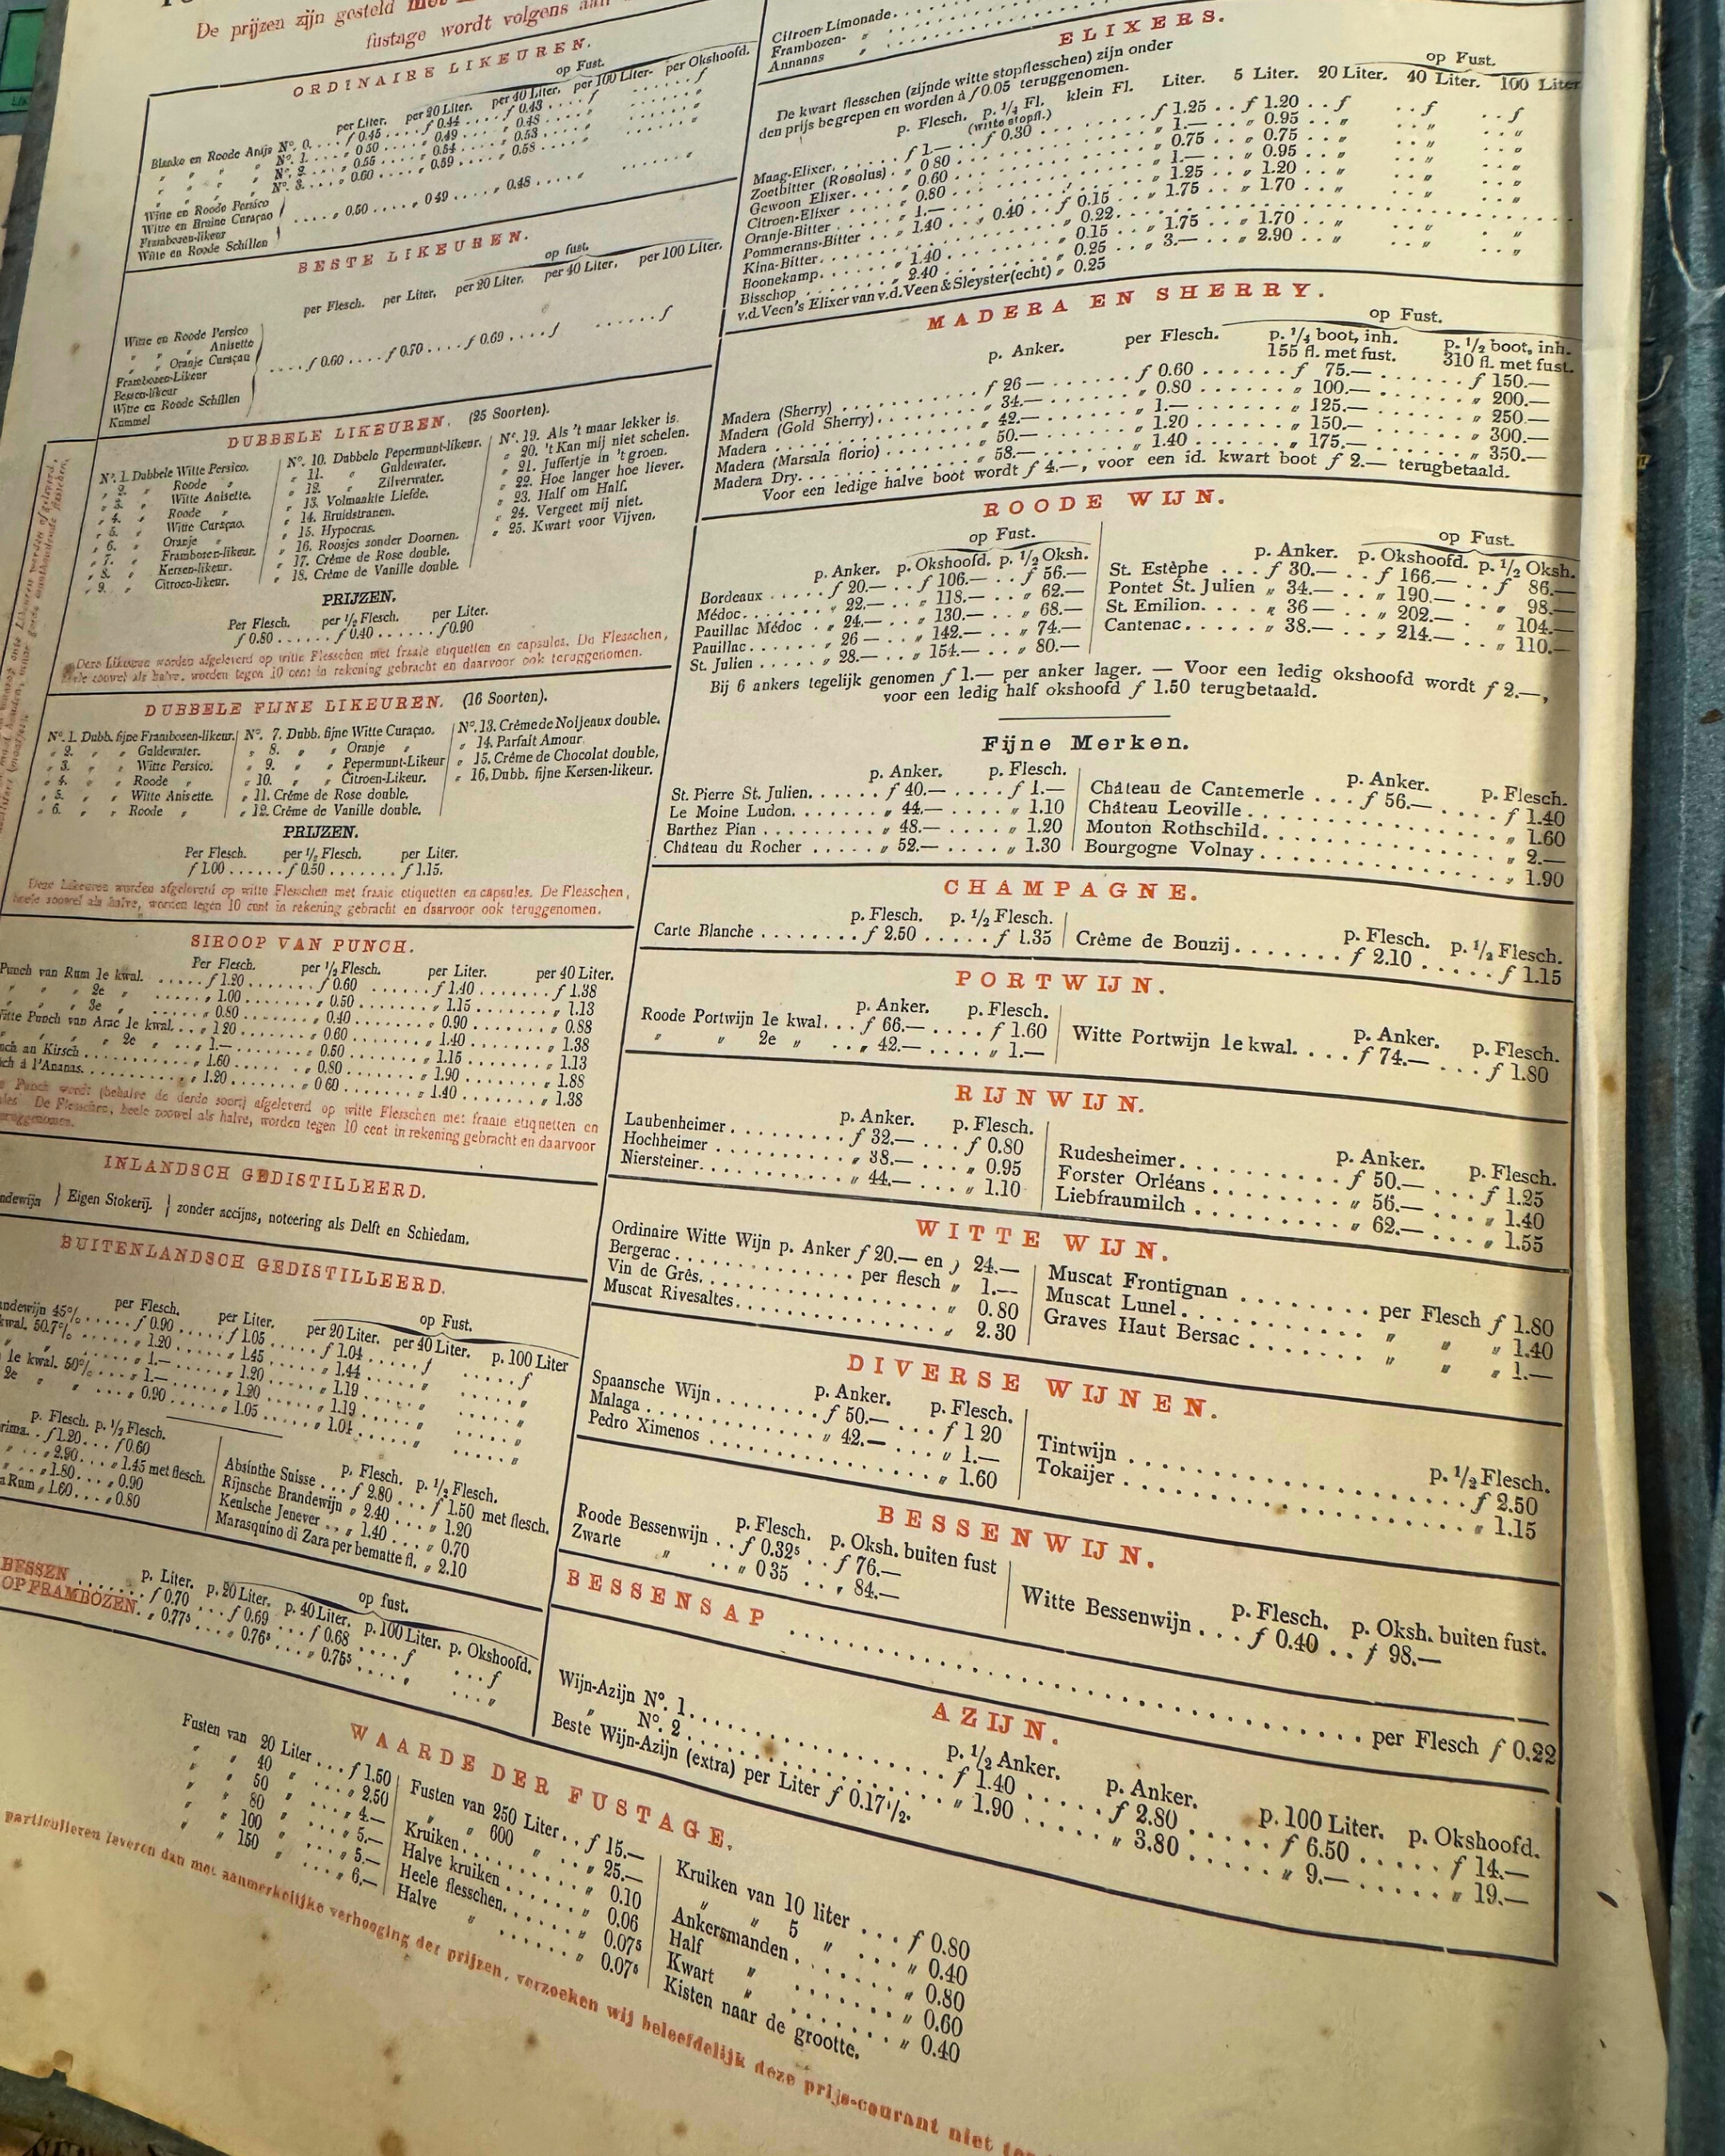 De prijzen zijn gesteld
fustage wordt volgens
ORDINAIRE LIKEUREN.
op Fust.
per Liter. per 20 Liter. per 40 Liter. per 100 Liter. per Okshoofd.
Blanke en Roode Anijs No. 0. . . . f 0.45 . . . . f 0.44 . . . . f 0.43 . . . . f . . . . . f
„ „ „ „ No. 1. . . . „ 0.50 . . . . „ 0.49 . . . . „ 0.48 . . . . „ . . . . . „
„ „ „ „ No. 2. . . . „ 0.55 . . . . „ 0.54 . . . . „ 0.53 . . . . „ . . . . . „
„ „ „ „ No. 3. . . . „ 0.60 . . . . „ 0.59 . . . . „ 0.58 . . . . „ . . . . . „
Witte en Roode Persico
Witte en Bruine Curaçao
Frambozen-likeur
Witte en Roode Schillen
. . . . . „ 0.50 . . . . . „ 0 49 . . . . . „ 0.48 . . . . . „ . . . . . „
BESTE LIKEUREN.
op fust.
per Flesch. per Liter. per 20 Liter. per 40 Liter. per 100 Liter.
Witte en Roode Persico
„ „ „ Anisette
„ „ Oranje Curaçau
Frambozen-Likeur
Bessen-likeur
Witte en Roode Schillen
Kummel
. . . . f 0.60 . . . . f 0.70 . . . . f 0.69 . . . . f . . . . . . f
DUBBELE LIKEUREN. (25 Soorten).
No. 1. Dubbele Witte Persico.
„ 2. „ Roode „
„ 3. „ Witte Anisette.
„ 4. „ Roode „
„ 5. „ Witte Curaçao.
„ 6. „ Oranje „
„ 7. „ Frambozen-likeur.
„ 8. „ Kersen-likeur.
„ 9. „ Citroen-likeur.
No. 10. Dubbele Pepermunt-likeur.
„ 11. „ Guldewater.
„ 12. „ Zilverwater.
„ 13. Volmaakte Liefde.
„ 14. Bruidstranen.
„ 15. Hypocras.
„ 16. Roosjes zonder Doornen.
„ 17. Crême de Rose double.
„ 18. Crême de Vanille double.
No. 19. Als 't maar lekker is.
„ 20. 't Kan mij niet schelen.
„ 21. Juffertje in 't groen.
„ 22. Hoe langer hoe liever.
„ 23. Half om Half.
„ 24. Vergeet mij niet.
„ 25. Kwart voor Vijven.
PRIJZEN.
Per Flesch. per 1/2 Flesch. per Liter.
f 0.80 . . . . . . f 0.40 . . . . . . f 0.90
Deze Likeuren worden afgeleverd op witte Flesschen met fraaie etiquetten en capsules. De Flesschen,
heele zoowel als halve, worden tegen 10 cent in rekening gebracht en daarvoor ook teruggenomen.
DUBBELE FIJNE LIKEUREN. (16 Soorten).
No. 1. Dubb. fijne Frambozen-likeur.
„ 2. „ „ Guldewater.
„ 3. „ „ Witte Persico.
„ 4. „ „ Roode „
„ 5. „ „ Witte Anisette.
„ 6. „ „ Roode „
No. 7. Dubb. fijne Witte Curaçao.
„ 8. „ „ Oranje „
„ 9. „ „ Pepermunt-Likeur
„ 10. „ „ Citroen-Likeur.
„ 11. Crême de Rose double.
„ 12. Crême de Vanille double.
No. 13. Crême de Noijeaux double.
„ 14. Parfait Amour.
„ 15. Crême de Chocolat double,
„ 16. Dubb. fijne Kersen-likeur.
PRIJZEN.
Per Flesch. per 1/2 Flesch. per Liter.
f 1.00 . . . . . . f 0.50 . . . . . . . f 1.15.
Deze Likeuren worden afgeleverd op witte Flesschen met fraaie etiquetten en capsules. De Flesschen,
heele zoowel als halve, worden tegen 10 cent in rekening gebracht en daarvoor ook teruggenomen.
SIROOP VAN PUNCH.
Per Flesch. per 1/2 Flesch. per Liter. per 40 Liter.
Punch van Rum 1e kwal. . . . . . f 1.20 . . . . . . . f 0.60 . . . . . . . f 1.40 . . . . . . . f 1.38
„ „ „ 2e „ . . . . . „ 1.00 . . . . . . . „ 0.50 . . . . . . . „ 1.15 . . . . . . . „ 1.13
„ „ „ 3e „ . . . . . „ 0.80 . . . . . . . „ 0.40 . . . . . . . „ 0.90 . . . . . . . „ 0.88
Witte Punch van Arac 1e kwal. . . „ 1 20 . . . . . . . „ 0.60 . . . . . . . „ 1.40 . . . . . . . „ 1.38
„ „ „ 2e „ . . „ 1.— . . . . . . . „ 0.50 . . . . . . . „ 1.15 . . . . . . . „ 1.13
nch au Kirsch . . . . . . . „ 1.60 . . . . . . . „ 0.80 . . . . . . . „ 1.90 . . . . . . . „ 1.88
ch á l'Ananas. . . . . . . „ 1.20 . . . . . . . „ 0 60 . . . . . . . „ 1.40 . . . . . . . „ 1.38
Punch wordt (behalve de derde soort) afgeleverd op witte Flesschen met fraaie etiquetten en
De Flesschen, heele zoowel als halve, worden tegen 10 cent in rekening gebracht en daarvoor
teruggenomen.
INLANDSCH GEDISTILLEERD.
ndewijn } Eigen Stokerij. } zonder accijns, noteering als Delft en Schiedam.
BUITENLANDSCH GEDISTILLEERD.
op Fust.
per Flesch. per Liter. per 20 Liter. per 40 Liter. p. 100 Liter
andewijn 45% . . . . f 0.90 . . . . . f 1.05 . . . . . f 1.04 . . . . . f . . . . . f
kwal. 50.7% . . . . „ 1.20 . . . . . „ 1.45 . . . . . „ 1.44 . . . . . „ . . . . . „
„ . . . . „ 1.— . . . . . „ 1.20 . . . . . „ 1.19 . . . . . „ . . . . . „
1e kwal. 50% . . . . „ 1.— . . . . . „ 1.20 . . . . . „ 1.19 . . . . . „ . . . . . „
2e „ „ . . . . „ 0.90 . . . . . „ 1.05 . . . . . „ 1.04 . . . . . „ . . . . . „
p. Flesch. p. 1/2 Flesch.
rima. . f 1.20 . . . f 0.60
„ 2.90 . . . „ 1.45 met flesch.
„ 1.80 . . . „ 0.90
a Rum „ 1.60 . . . „ 0.80
p. Flesch. p. 1/2 Flesch.
Absinthe Suisse . . . f 2.80 . . . f 1.50 met flesch.
Rijnsche Brandewijn „ 2.40 . . . „ 1.20
Keulsche Jenever . . „ 1.40 . . . „ 0.70
Marasquino di Zara per bematte fl. „ 2.10
op fust.
p. Liter. p. 20 Liter. p. 40 Liter. p. 100 Liter. p. Okshoofd.
BESSEN . . . . . . f 0.70 . . . f 0.69 . . . f 0.68 . . . . f . . . . f
OP FRAMBOZEN. . „ 0.775 . . . . „ 0.765 . . . . „ 0.755 . . . . „ . . . . „
WAARDE DER FUSTAGE.
Fusten van 20 Liter . . . f 1.50
„ „ 40 „ . . . „ 2.50
„ „ 50 „ . . . „ 4.—
„ „ 80 „ . . . „ 5.—
„ „ 100 „ . . . „ 5.—
„ „ 150 „ . . . „ 6.—
Fusten van 250 Liter . . f 15.—
„ „ 600 „ . . „ 25.—
Kruiken. . . . . . . . . „ 0.10
Halve kruiken . . . . . . „ 0.06
Heele flesschen. . . . . . „ 0.075
Halve „ . . . . . . „ 0.075
Kruiken van 10 liter . . . f 0.80
„ „ 5 „ . . . „ 0.40
Ankersmanden . . . . . . . „ 0.80
Half „ . . . . . . . „ 0.60
Kwart „ . . . . . . . „ 0.40
Kisten naar de grootte.
particulieren leveren dan met aanmerkelijke verhooging der prijzen, verzoeken wij beleefdelijk deze prijs-courant niet
Citroen-Limonade. . . . .
Frambozen- „ . . . . .
Annanas „ . . . . .
ELIXERS.
De kwart flesschen (zijnde witte stopflesschen) zijn onder
den prijs begrepen en worden à f 0.05 teruggenomen.
op Fust.
p. Flesch. p. 1/4 Fl. klein Fl. Liter. 5 Liter. 20 Liter. 40 Liter. 100 Liter
(witte stopfl.)
Maag-Elixer. . . . . . . f 1.— . . f 0.30 . . . . . . . . f 1.25 . . f 1.20 . . f . . f . . f
Zoetbitter (Rosolus) . . „ 0 80 . . . . . . . . „ 1.— . . „ 0.95 . . „ . . „ . . „
Gewoon Elixer. . . . . „ 0.60 . . . . . . . . „ 0.75 . . „ 0.75 . . „ . . „ . . „
Citroen-Elixer . . . . „ 0.80 . . . . . . . . „ 1.— . . „ 0.95 . . „ . . „ . . „
Oranje-Bitter . . . . „ 1.— . . . . . . . . „ 1.25 . . „ 1.20 . . „ . . „ . . „
Pommerans-Bitter . . . „ 1.40 . . . . „ 0.40 . . f 0.15 . . „ 1.75 . . „ 1.70 . . „ . . „ . . „
Kina-Bitter. . . . . . . . . . . . „ 0.22. . . . . . . . . . . . .
Boonekamp. . . . . . „ 1.40 . . . . . . „ 0.15 . . „ 1.75 . . „ 1.70 . . „ . . „ . . „
Bisschop . . . . . . „ 2.40 . . . . . . „ 0.25 . . „ 3.— . . „ 2.90 . . „ . . „ . . „
v.d. Veen's Elixer van v.d. Veen & Sleyster (echt) „ 0.25
MADERA EN SHERRY.
op Fust.
p. Anker. per Flesch. p. 1/4 boot, inh. p. 1/2 boot, inh.
155 fl. met fust. 310 fl. met fust.
Madera (Sherry) . . . . . . . . f 26 — . . . . . . . f 0.60 . . . . . . f 75.— . . . . . . f 150.—
Madera (Gold Sherry). . . . . . . „ 34.— . . . . . . . „ 0.80 . . . . . . „ 100.— . . . . . . „ 200.—
Madera . . . . . . . . . . . „ 42.— . . . . . . . „ 1.— . . . . . . „ 125.— . . . . . . „ 250 —
Madera (Marsala florio) . . . . . . „ 50.— . . . . . . . „ 1.20 . . . . . . „ 150.— . . . . . . „ 300.—
Madera Dry. . . . . . . . . . . „ 58.— . . . . . . . „ 1.40 . . . . . . „ 175.— . . . . . . „ 350.—
Voor een ledige halve boot wordt f 4.—, voor een id. kwart boot f 2.— terugbetaald.
ROODE WIJN.
op Fust.
p. Anker. p. Okshoofd. p. 1/2 Oksh.
Bordeaux . . . . . f 20.— . . f 106.— . . f 56.—
Médoc. . . . . . . „ 22.— . . „ 118.— . . „ 62.—
Pauillac Médoc . . „ 24.— . . „ 130.— . . „ 68.—
Pauillac. . . . . . „ 26 — . . „ 142.— . . „ 74.—
St. Julien . . . . . „ 28.— . . „ 154.— . . „ 80.—
op Fust.
p. Anker. p. Okshoofd. p. 1/2 Oksh.
St. Estèphe . . . f 30.— . . f 166.— . . f 86.—
Pontet St. Julien „ 34.— . . „ 190.— . . „ 98.—
St. Emilion. . . . „ 36 — . . „ 202.— . . „ 104.—
Cantenac. . . . . „ 38.— . . „ 214.— . . „ 110.—
Bij 6 ankers tegelijk genomen f 1.— per anker lager. — Voor een ledig okshoofd wordt f 2.—,
voor een ledig half okshoofd f 1.50 terugbetaald.
Fijne Merken.
p. Anker. p. Flesch.
St. Pierre St. Julien. . . . . . f 40.— . . . . f 1.—
Le Moine Ludon. . . . . . . „ 44.— . . . . „ 1.10
Barthez Pian . . . . . . . . „ 48.— . . . . „ 1.20
Château du Rocher . . . . . „ 52.— . . . . „ 1.30
p. Anker. p. Flesch.
Château de Cantemerle . . . f 56.— . . . . f 1.40
Château Leoville . . . . . . . . . . . . . „ 1.60
Mouton Rothschild. . . . . . . . . . . . . „ 2.—
Bourgogne Volnay . . . . . . . . . . . . . „ 1.90
CHAMPAGNE.
p. Flesch. p. 1/2 Flesch.
Carte Blanche . . . . . . . . f 2.50 . . . . . f 1.35
p. Flesch. p. 1/2 Flesch.
Crème de Bouzij . . . . . . . f 2.10 . . . . . f 1.15
PORTWIJN.
p. Anker. p. Flesch.
Roode Portwijn 1e kwal. . . f 66.— . . . . f 1.60
„ „ 2e „ . . . „ 42.— . . . . „ 1.—
p. Anker. p. Flesch.
Witte Portwijn 1e kwal. . . . f 74.— . . . f 1.80
RIJNWIJN.
p. Anker. p. Flesch.
Laubenheimer . . . . . . . . . f 32.— . . . f 0.80
Hochheimer . . . . . . . . . . „ 38.— . . . „ 0.95
Niersteiner. . . . . . . . . . . „ 44.— . . . „ 1.10
p. Anker. p. Flesch.
Rudesheimer. . . . . . . . . f 50.— . . . f 1.25
Forster Orléans . . . . . . . . „ 56.— . . . „ 1.40
Liebfraumilch . . . . . . . . . „ 62.— . . . „ 1.55
WITTE WIJN.
Ordinaire Witte Wijn p. Anker f 20.— en „ 24.—
Bergerac . . . . . . . . . . . per flesch „ 1.—
Vin de Grès. . . . . . . . . . . . . . „ 0.80
Muscat Rivesaltes. . . . . . . . . . . . „ 2.30
Muscat Frontignan . . . . . . . . per Flesch f 1.80
Muscat Lunel . . . . . . . . . . . „ „ „ 1.40
Graves Haut Bersac . . . . . . . . „ „ „ 1.—
DIVERSE WIJNEN.
p. Anker. p. Flesch.
Spaansche Wijn . . . . . . . f 50.— . . . f 1 20
Malaga . . . . . . . . . . . „ 42.— . . . „ 1.—
Pedro Ximenos . . . . . . . . . . . . . „ 1.60
p. 1/2 Flesch.
Tintwijn . . . . . . . . . . . . . . . . . f 2.50
Tokaijer . . . . . . . . . . . . . . . . . „ 1.15
BESSENWIJN.
p. Flesch. p. Oksh. buiten fust
Roode Bessenwijn . . f 0.325 . . f 76.—
Zwarte „ . . „ 0 35 . . „ 84.—
p. Flesch. p. Oksh. buiten fust.
Witte Bessenwijn . . . f 0.40 . . f 98.—
BESSENSAP . . . . . . . . . . . . . . . . . . . . . . per Flesch f 0.22
AZIJN.
p. 1/2 Anker. p. Anker. p. 100 Liter. p. Okshoofd.
Wijn-Azijn No. 1. . . . . . . . . . . . f 1.40 . . . . . f 2.80 . . . . . f 6.50 . . . . . f 14.—
„ No. 2 . . . . . . . . . . . . „ 1.90 . . . . . „ 3.80 . . . . . „ 9.— . . . . . „ 19.—
Beste Wijn-Azijn (extra) per Liter f 0.17 1/2.